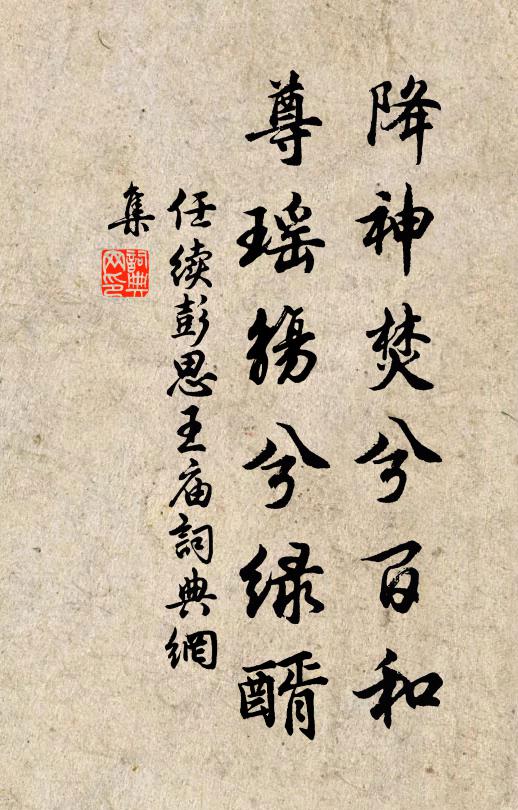 降神焚兮百和
尊瑶觞兮绿醑
任续彭思王庙詞典網
集
詞典
网印